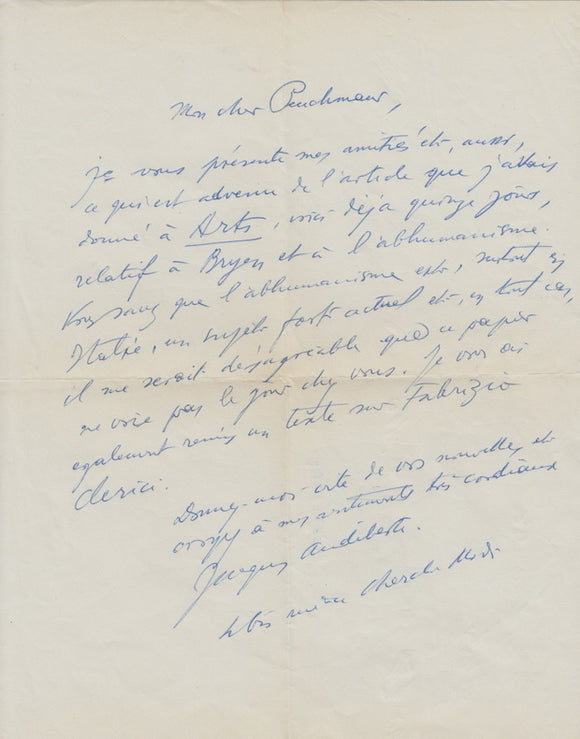 Mon cher Peuchmaur,
Je vous présente mes amitiés et, aussi,
ce qui est advenu de l'article que j'avais
donné à Arts, voici déjà quinze jours,
relatif à Bryen et à l'abhumanisme.
Vous savez que l'abhumanisme est, surtout en
Italie, un sujet fort actuel et, en tout cas,
il me serait désagréable que ce papier
ne voie pas le jour chez vous. Je vous ai
également remis un texte sur Fabrizio
Clerici.
Donnez-moi vite de vos nouvelles et
croyez à mes sentiments très cordiaux
Jacques Audiberti.
4 bis rue du Cherche Midi